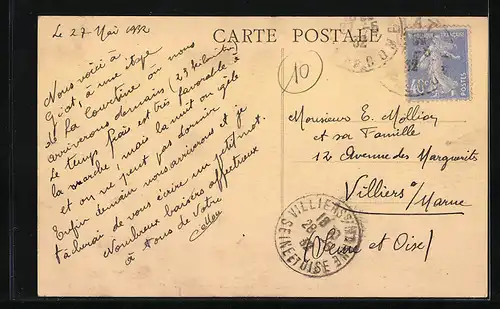 Le 27 Mai 1932
CARTE POSTALE
10
Nous voici à
Giat, à une étape
de La Courtine où nous
arriverons demain (23 kilomètres)
Le temps frais est très favorable à
la marche, mais la nuit on gèle
et on ne peut pas dormir
Enfin demain nous arriverons et je
tâcherai de vous écrire un petit mot.
Nombreux baisers affectueux
à tous de Votre
Monsieur E. Mollion
et sa Famille
12 Avenue des Marguerites
Villiers s/ Marne
(Seine et Oise)
VILLIERS S. MARNE
18
28
SEINE ET OISE
POSTES